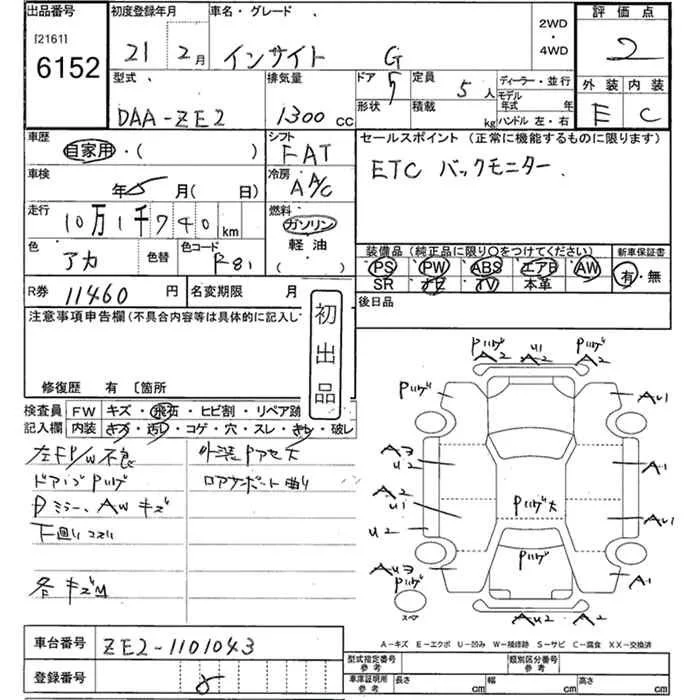 出品番号
[2161]
6152
初度登録年月
21 2月
車名・グレード
インサイト G
2WD
・
4WD
評価点
2
外装 内装
E C
型式
DAA-ZE2
排気量
1300 CC
ドア 5
形状
定員 5人
積載 kg
ディーラー・並行
モデル年式 年
ハンドル 左・右
車歴
自家用・( )
シフト
FAT
セールスポイント (正常に機能するものに限ります)
ETC バックモニター
車検
年 月 ( 日)
冷房
A A/C
走行
10万1千740km
燃料
ガソリン
軽油
( )
色
アカ
色替
色コード
R81
装備品 (純正品に限り○をつけてください)
PS PW ABS エアB AW
SR ナビ TV 本革
新車保証書
有・無
R券 11460 円
名変期限 月
後日品
注意事項申告欄 (不具合内容等は具体的に記入し
初出品
修復歴 有 〔箇所
検査員
記入欄
FW キズ・飛石・ヒビ割・リペア跡
内装 キズ・汚レ・コゲ・穴・スレ・キレ・破レ
左FP/W不良
ドアノブPハゲ
Dミラー、AWキズ
下廻りコスリ
各キズM
外装Pアセ大
ロアサポート曲り
Pハゲ U1 Pハゲ
A2 U2 A2
Pハゲ A U1
A3
U2 A1
A2
U1 Pハゲ大 A U1
U2
A U3 Pハゲ A1
Pハゲ
スペア
A U2 A2
A-キズ E-エクボ U-凹み W-補修跡 S-サビ C-腐食 XX-交換済
車台番号 ZE2-1101043
登録番号
型式指定番号
参考
類別区分番号
参考
車庫証明用
参考
長さ cm 幅 cm 高さ cm